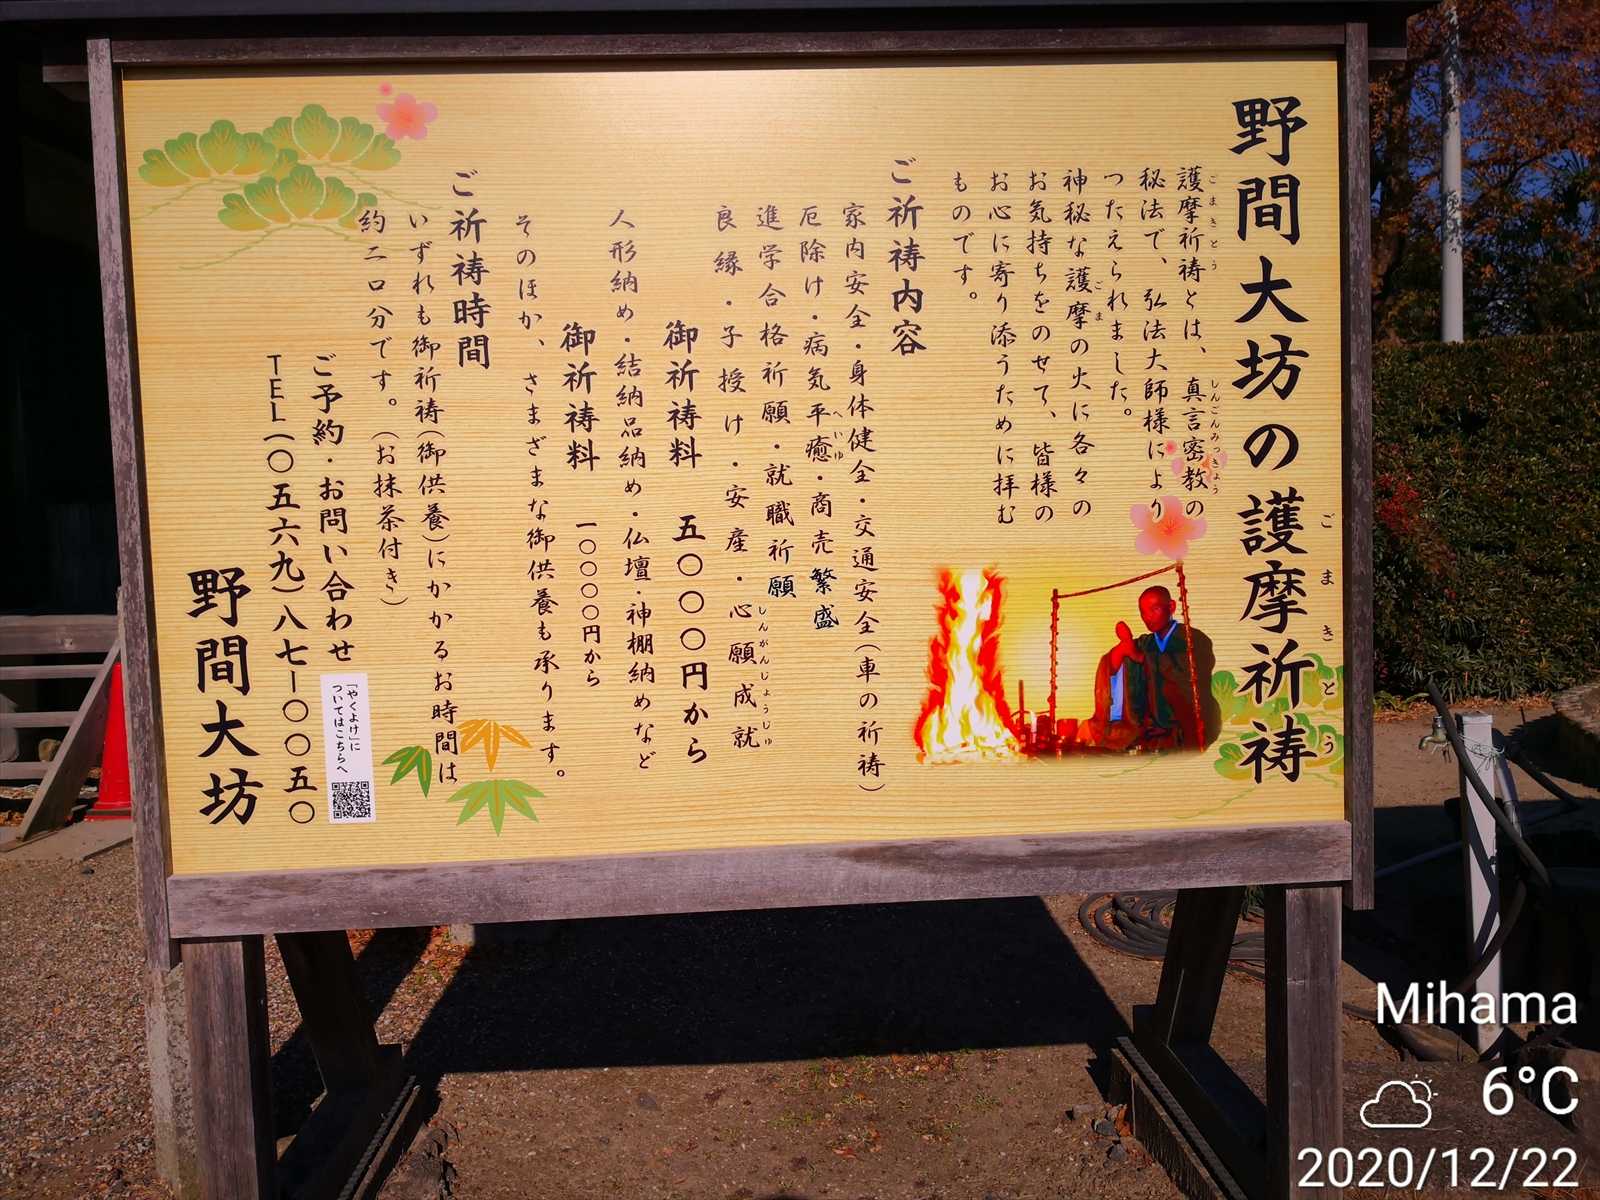 野間大坊の護摩祈祷
ごまきとう
護摩祈祷とは、真言密教の
ごまきとう
しんごんみっきょう
秘法で、弘法大師様により
つたえられました。
神秘な護摩の火に各々の
ごま
お気持ちをのせて、皆様の
お心に寄り添うために拝む
ものです。
ご祈祷内容
家内安全・身体健全・交通安全(車の祈祷)
厄除け・病気平癒・商売繁盛
へいゆ
進学合格祈願・就職祈願
良縁・子授け・安産・心願成就
しんがんじょうじゅ
御祈祷料 五〇〇〇円から
人形納め・結納品納め・仏壇・神棚納めなど
御祈祷料 一〇〇〇〇円から
そのほか、さまざまな御供養も承ります。
ご祈祷時間
いずれも御祈祷(御供養)にかかるお時間は
約二〇分です。(お抹茶付き)
ご予約・お問い合わせ
TEL(〇五六九)八七ー〇〇五〇
「やくよけ」に
ついてはこちらへ
野間大坊
Mihama
6°C
2020/12/22